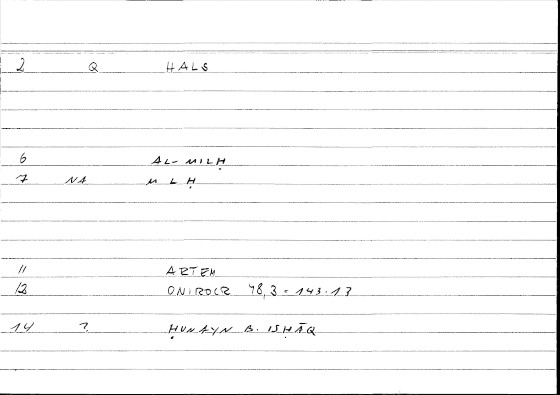 2 Q HALS
6 AL-MILḤ
7 NA M L Ḥ
11 ARTEM
12 ONIROCR 78,3 = 143.13
14 ḤUNAYN B. ISḤĀQ